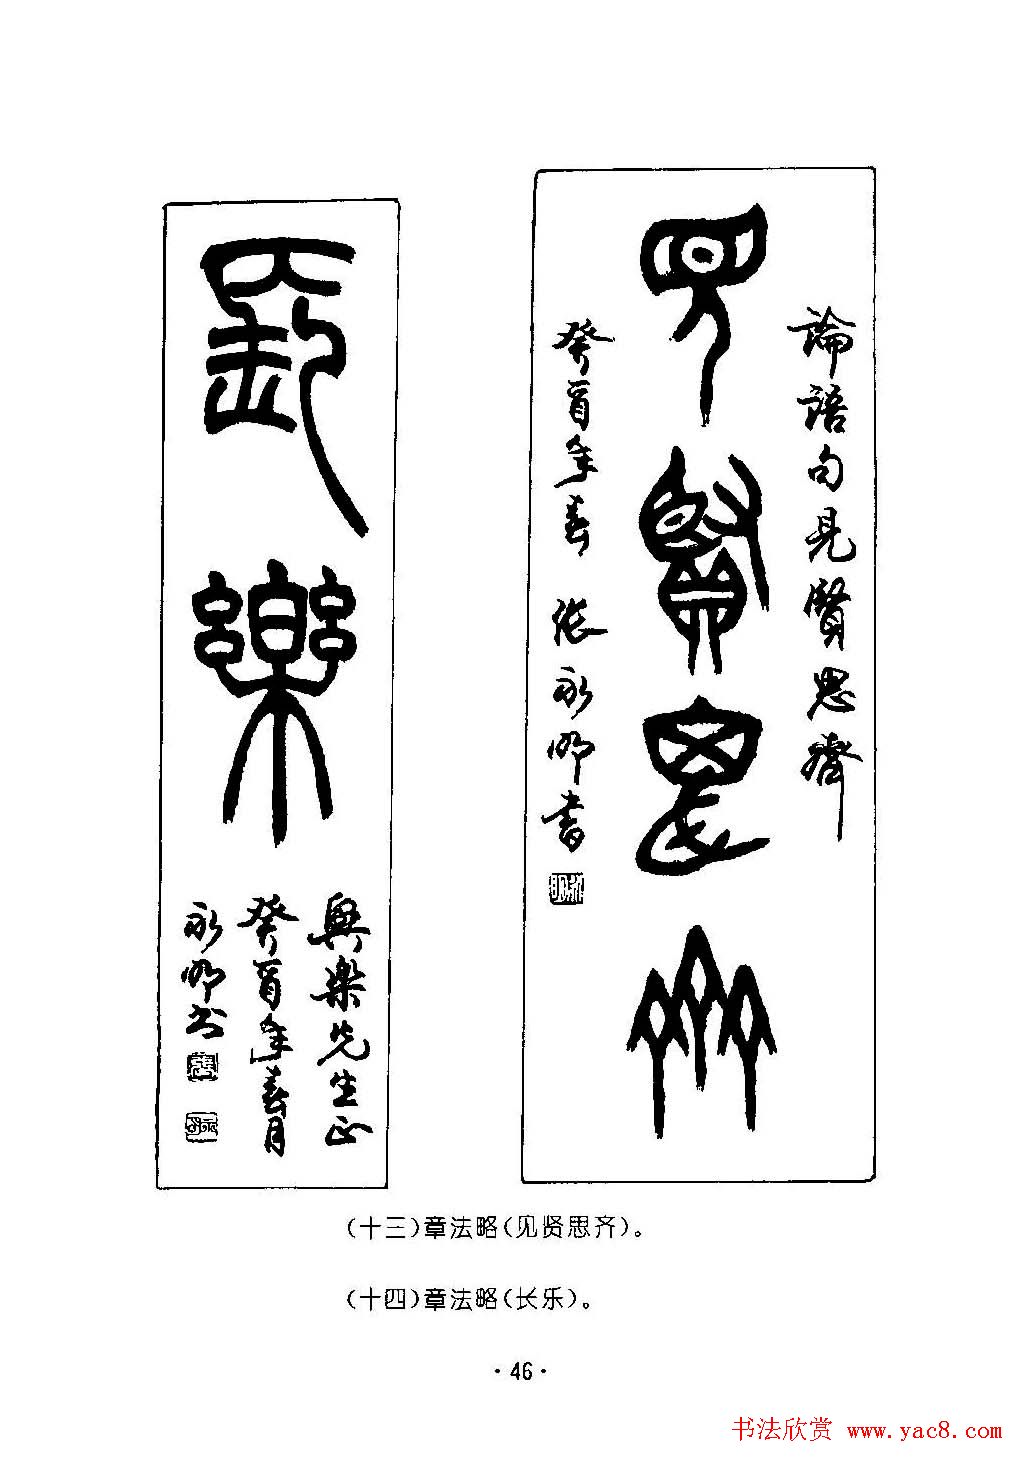 論語句見賢思齊
見賢思齊
癸酉年春 張永明書
長樂
興樂先生正
癸酉年春月
永明书
(十三)章法略(见贤思齐)。
(十四)章法略(长乐)。
·46·
书法欣赏 www.yac8.com